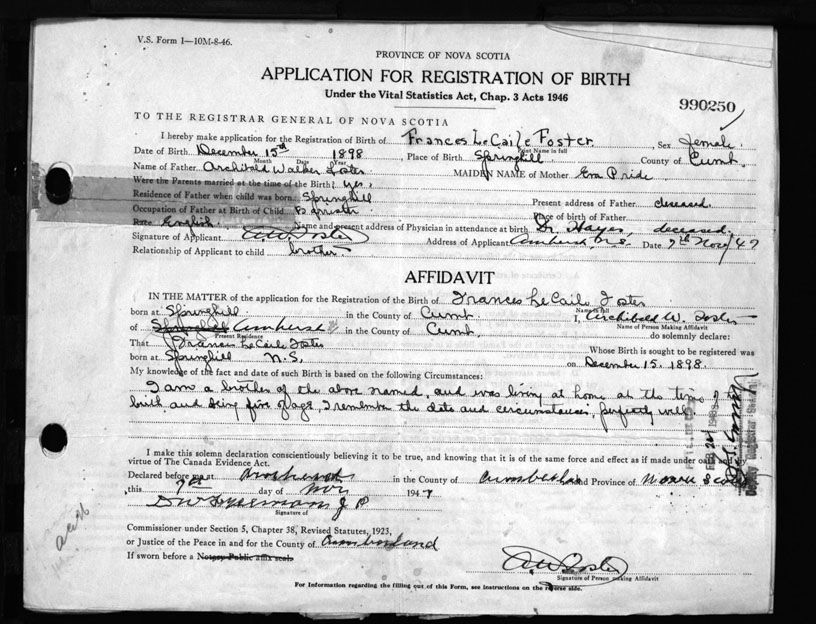 V.S. Form 1—10M-8-46.
PROVINCE OF NOVA SCOTIA
APPLICATION FOR REGISTRATION OF BIRTH
Under the Vital Statistics Act, Chap. 3 Acts 1946
990250
TO THE REGISTRAR GENERAL OF NOVA SCOTIA
I hereby make application for the Registration of Birth of Frances LeCaile Foster Sex female
Print Name in full
Date of Birth December 15th 1898 Place of Birth Springhill County of Cumb.
Month Date Year
Name of Father Archibald Walker Foster MAIDEN NAME of Mother Ena Pride
Were the Parents married at the time of the Birth? yes.
Residence of Father when child was born Springhill Present address of Father deceased.
Occupation of Father at Birth of Child Barrister Place of birth of Father
Race English Name and present address of Physician in attendance at birth Dr. Hayes, deceased.
Signature of Applicant A W Foster Address of Applicant Amherst N.S. Date 7th Nov/47
Relationship of Applicant to child brother
AFFIDAVIT
IN THE MATTER of the application for the Registration of the Birth of Frances LeCaile Foster
Name in full
born at Springhill in the County of Cumb. I, Archibald W. Foster
Name of Person Making Affidavit
of Springhill Amherst in the County of Cumb. do solemnly declare:
Present Residence
That Frances LeCaile Foster Whose Birth is sought to be registered was
born at Springhill N.S. on December 15. 1898.
My knowledge of the fact and date of such Birth is based on the following Circumstances:
I am a brother of the above named, and was living at home at the time of the
birth and being five of age, I remember the date and circumstances, perfectly well.
I make this solemn declaration conscientiously believing it to be true, and knowing that it is of the same force and effect as if made under oath and
virtue of The Canada Evidence Act.
Declared before me at Amherst in the County of Cumberland and Province of Nova Scotia
this 7th day of Nov 1947
J P
Signature of
Commissioner under Section 5, Chapter 38, Revised Statutes, 1923,
or Justice of the Peace in and for the County of Cumberland
If sworn before a Notary Public affix seal.
A W Foster
Signature of Person making Affidavit
For Information regarding the filling out of this Form, see instructions on the reverse side.